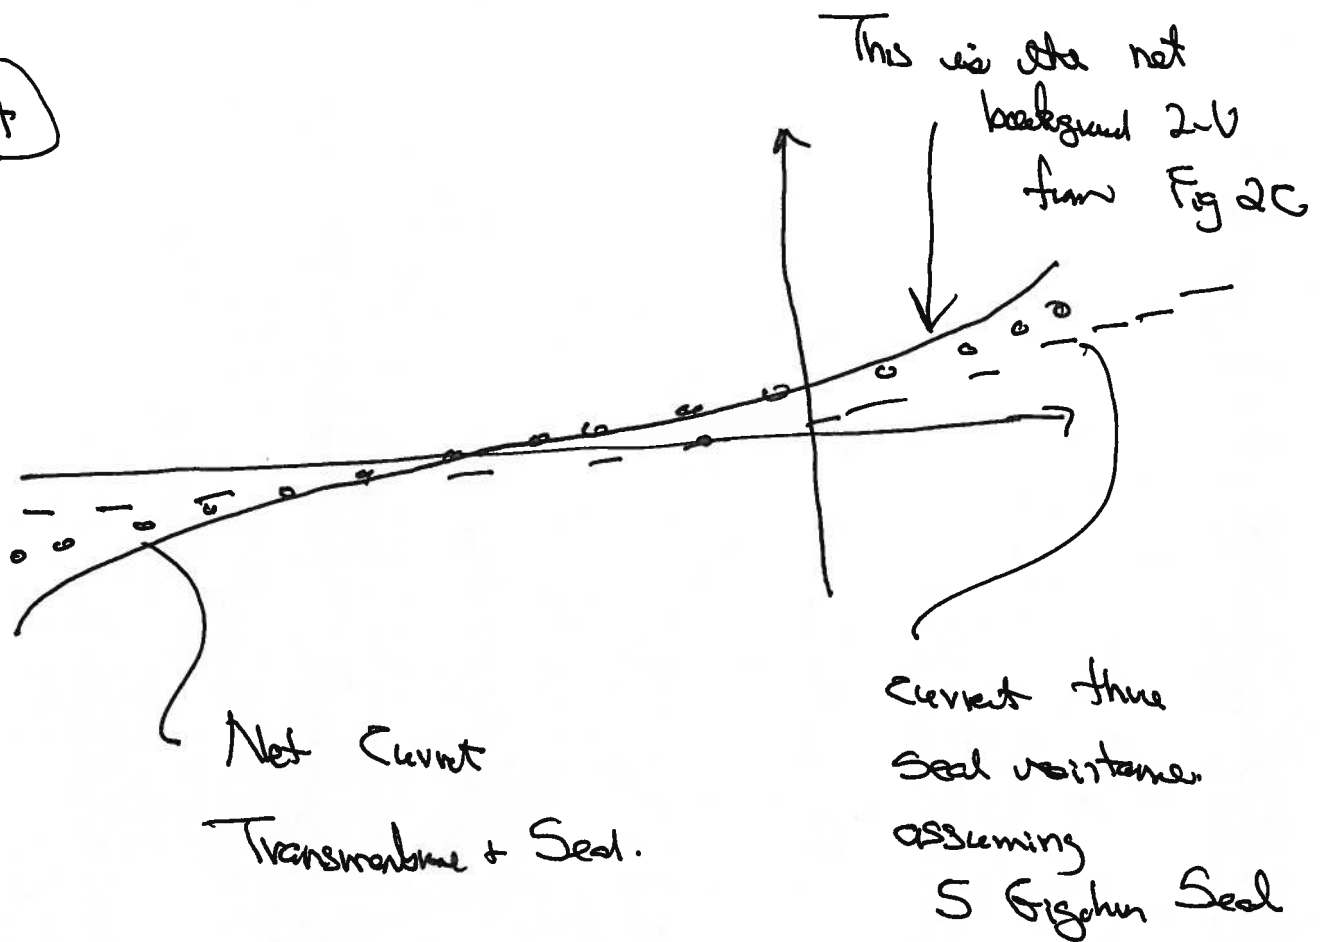 This is the net
background 2-V
from Fig 2C
Net Current
Transmembrane + Seal.
current thru
Seal resistance
assuming
5 Gigohm Seal